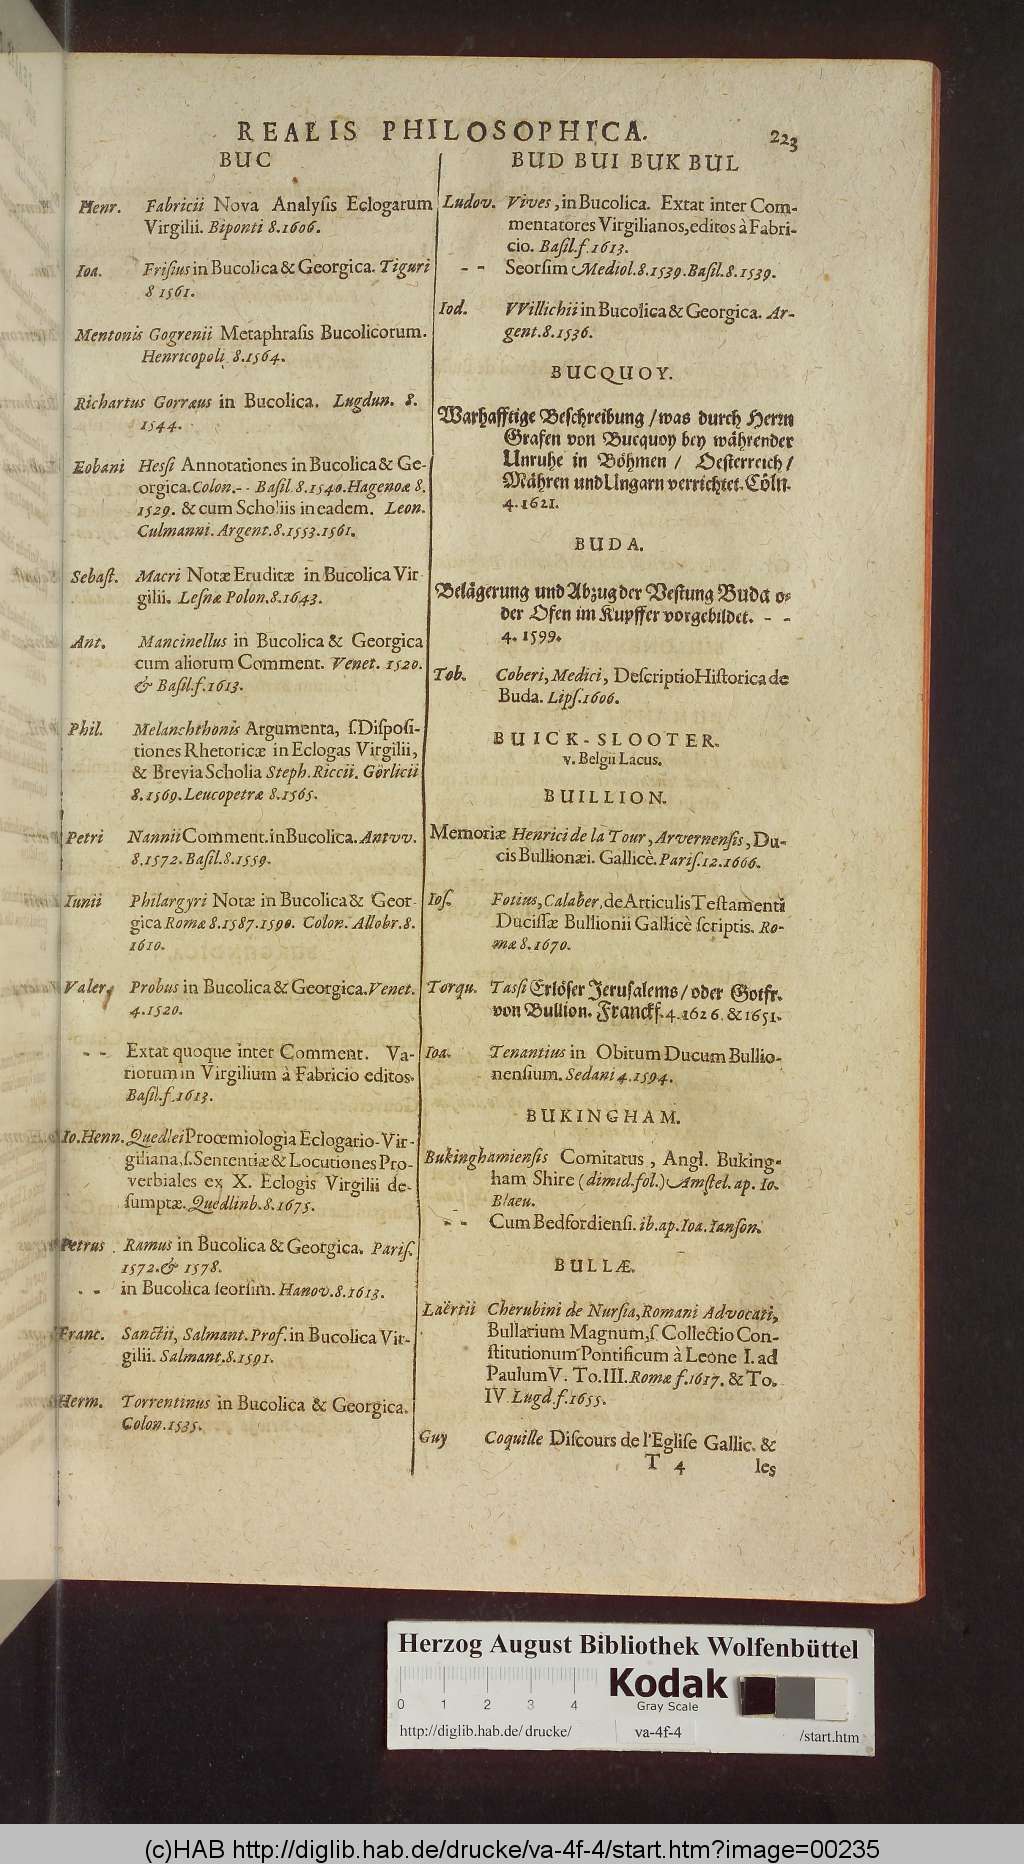 REALIS PHILOSOPHICA.
223
BUC
Henr. Fabricii Nova Analyſis Eclogarum
Virgilii. Biponti 8.1606.
Ioa. Friſius in Bucolica & Georgica. Tiguri
8 1561.
Mentonis Gogrenii Metaphraſis Bucolicorum.
Henricopoli 8.1564.
Richartus Gorræus in Bucolica. Lugdun. 8.
1544.
Eobani Heſſi Annotationes in Bucolica & Ge-
orgica. Colon. - - Baſil. 8.1540. Hagenoæ 8.
1529. & cum Scholiis in eadem. Leon.
Culmanni. Argent. 8.1553.1561.
Sebaſt. Macri Notæ Eruditæ in Bucolica Vir
gilii. Leſnæ Polon. 8.1643.
Ant. Mancinellus in Bucolica & Georgica
cum aliorum Comment. Venet. 1520.
& Baſil. f. 1613.
Phil. Melanchthonis Argumenta, ſ. Diſpoſi-
tiones Rhetoricæ in Eclogas Virgilii,
& Brevia Scholia Steph. Riccii. Görlicii
8.1569. Leucopetræ 8.1565.
Petri Nannii Comment. in Bucolica. Antvv.
8.1572. Baſil. 8.1559.
Iunii Philargyri Notæ in Bucolica & Geor-
gica Romæ 8.1587.1590. Colon. Allobr. 8.
1610.
Valer. Probus in Bucolica & Georgica. Venet.
4.1520.
- - Extat quoque inter Comment. Va-
riorum in Virgilium à Fabricio editos.
Baſil. f. 1613.
Io. Henn. Quedlei Prooemiologia Eclogario-Vir-
giliana, ſ. Sententiæ & Locutiones Pro-
verbiales ex X. Eclogis Virgilii de-
ſumptæ. Quedlinb. 8.1675.
Petrus Ramus in Bucolica & Georgica. Pariſ.
1572. & 1578.
- - in Bucolica ſeorſim. Hanov. 8.1613.
Franc. Sanctii, Salmant. Prof. in Bucolica Vir-
gilii. Salmant. 8.1591.
Herm. Torrentinus in Bucolica & Georgica.
Colon. 1535.
BUD BUI BUK BUL
Ludov. Vives, in Bucolica. Extat inter Com-
mentatores Virgilianos, editos à Fabri-
cio. Baſil. f. 1613.
- - Seorſim Mediol. 8.1539. Baſil. 8.1539.
Iod. VVillichii in Bucolica & Georgica. Ar-
gent. 8.1536.
BUCQUOY.
Warhafftige Beſchreibung / was durch Herrn
Grafen von Bucquoy bey währender
Unruhe in Böhmen / Oeſterreich /
Mähren und Ungarn verrichtet. Cöln.
4. 1621.
BUDA.
Belägerung und Abzug der Veſtung Buda o-
der Ofen im Kupffer vorgebildet. - -
4. 1599.
Tob. Coberi, Medici, Deſcriptio Hiſtorica de
Buda. Lipſ. 1606.
BUICK-SLOOTER.
v. Belgii Lacus.
BUILLION.
Memoriæ Henrici de la Tour, Arvernenſis, Du-
cis Bullionæi. Gallicè. Pariſ. 12. 1666.
Ioſ. Fotius, Calaber, de Articulis Teſtamenti
Duciſſæ Bullionii Gallicè ſcriptis. Ro-
mæ 8. 1670.
Torqu. Taſſi Erlöſer Jeruſalems / oder Gotfr.
von Bullion. Franckf. 4. 1626. & 1651.
Ioa. Tenantius in Obitum Ducum Bullio-
nenſium. Sedani 4. 1594.
BUKINGHAM.
Bukinghamienſis Comitatus, Angl. Buking-
ham Shire (dimid. fol.) Amſtel. ap. Io.
Blaeu.
- - Cum Bedfordienſi. ib. ap. Ioa. Ianſon.
BULLÆ.
Laërtii Cherubini de Nurſia, Romani Advocati,
Bullarium Magnum, ſ Collectio Con-
ſtitutionum Pontificum à Leone I. ad
Paulum V. To. III. Romæ f. 1617. & To.
IV. Lugd. f. 1655.
Guy Coquille Diſcours de l'Egliſe Gallic. &
T 4
les
Herzog August Bibliothek Wolfenbüttel
0 1 2 3 4
Kodak
Gray Scale
http://diglib.hab.de/drucke/
va-4f-4
/start.htm
(c)HAB http://diglib.hab.de/drucke/va-4f-4/start.htm?image=00235